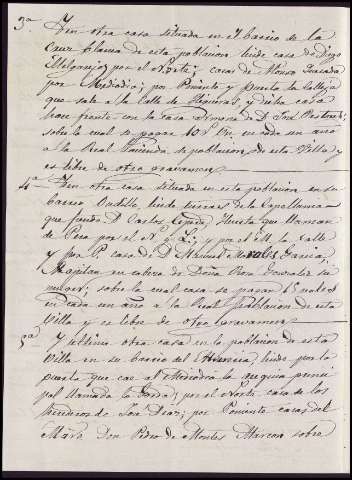 3ª Yd en otra casa situada en el barrio de la
Cruz blanca de esta poblacion linde casa de Diego
Melgarejo por el Norte; casas de Alonso
por Mediodia; por Poniente y puerta la Calleja
que sale a la Calle de Higueras, y dicha casa
hace frente con la casa de D. José
sobre la cual se pagan 10 rs. vn. en cada un año
a la Real Hacienda de poblacion de esta Villa y
es libre de otro gravamen.
4ª Yd en otra casa situada en esta poblacion en su
barrio linde tierras de la Capellania
que fundó D. Carlos Cepeda, Huerta que llaman
de por el N. y L.; y por el M. la calle
y por P. casa de D. Manuel Garcia
en cabeza de Doña Gonzalez su
muger; sobre la cual casa se pagan 6 reales
en cada un año a la Real poblacion de esta
Villa y es libre de otro gravamen.
5ª Y ultima otra casa en la poblacion de esta
Villa en su barrio del linde por la
puerta que cae al Mediodia la acequia princi
pal llamada la Gorda; por el Norte casa de los
herederos de José Diaz; por Poniente casas del
Don Pedro de Montes sobre